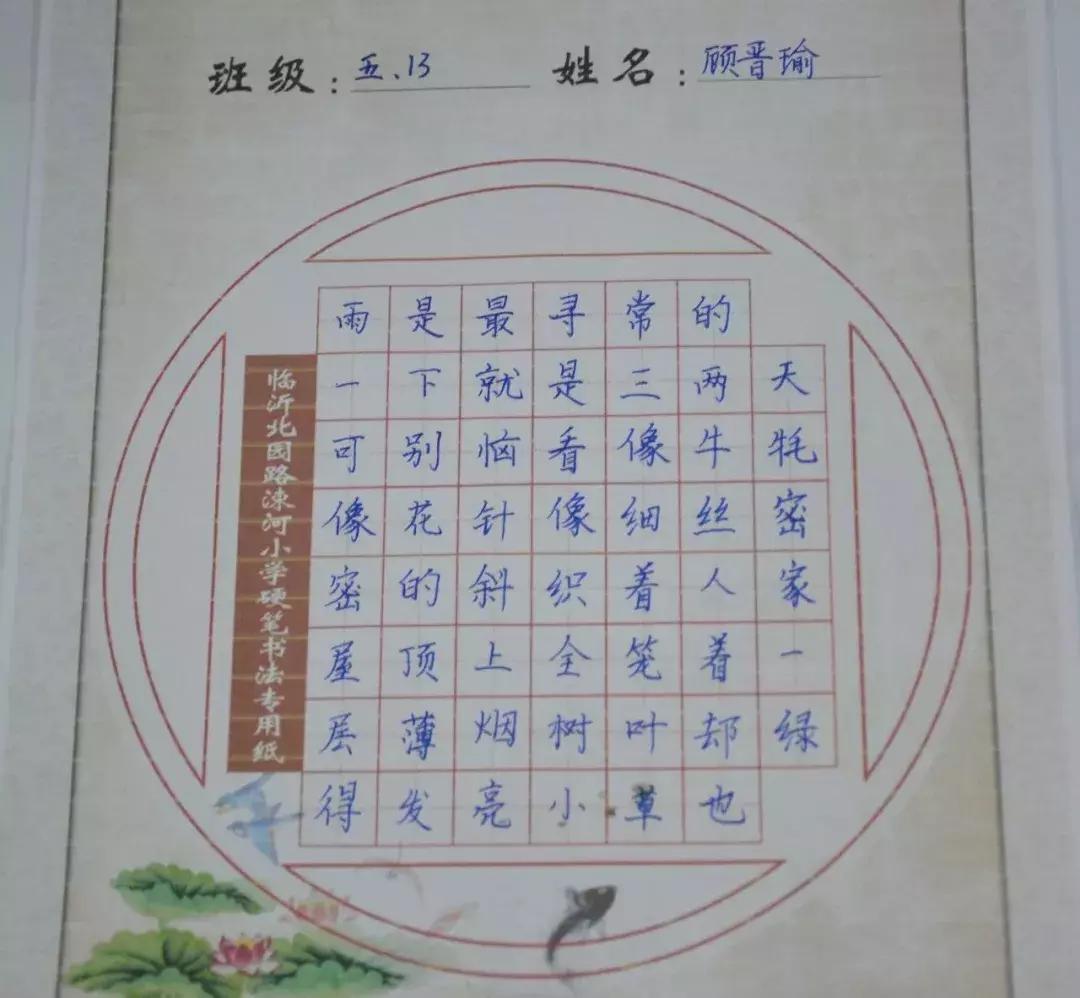 班级：五、13 姓名：顾晋瑜
临沂北园路涑河小学硬笔书法专用纸
雨是最寻常的
一下就是三两天
可别恼看像牛牦
像花针像细丝密
密的斜织着人家
屋顶上全笼着一
层薄烟树叶却绿
得发亮小草也